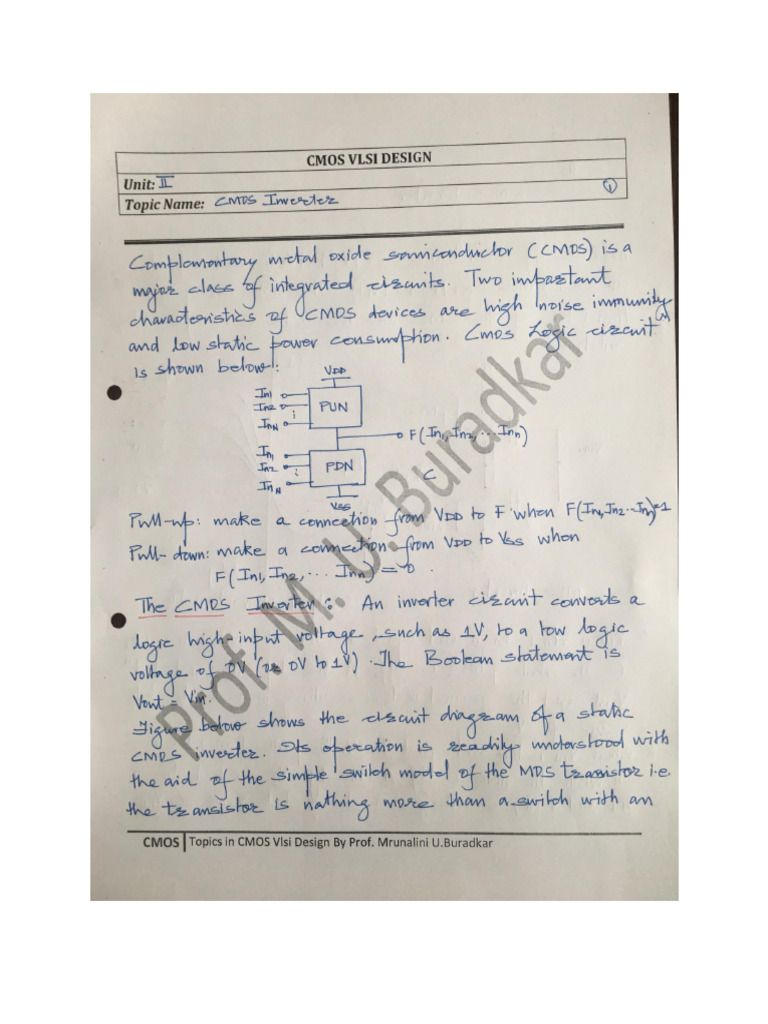 CMOS VLSI DESIGN
Unit: II
①
Topic Name: CMOS Inverter
Complementary metal oxide semiconductor (CMOS) is a
major class of integrated circuits. Two important
characteristics of CMOS devices are high noise immunity
and low static power consumption. Cmos Logic circuit
is shown below:
VDD
In1
In2
InN
PUN
F(In1, In2, ... Inn)
In1
In2
InN
PDN
VSS
Pull-up: make a connection from VDD to F when F(In1, In2 ... Inn)=1
Pull-down: make a connection from VDD to VSS when
F(In1, In2, ... Inn) = 0.
The CMOS Inverter: An inverter circuit converts a
logic high-input voltage, such as 1V, to a low logic
voltage of 0V (or 0V to 1V). The Boolean statement is
Vout = Vin.
Figure below shows the circuit diagram of a static
CMOS inverter. Its operation is readily understood with
the aid of the simple switch model of the MOS transistor i.e.
the transistor is nothing more than a switch with an
CMOS Topics in CMOS Vlsi Design By Prof. Mrunalini U.Buradkar
Prof. M. U. Buradkar